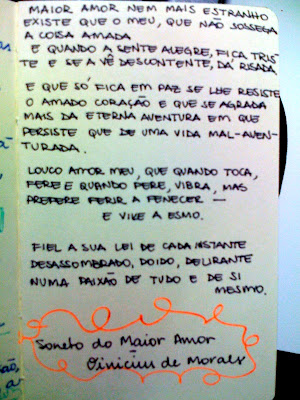 MAIOR AMOR NEM MAIS ESTRANHO
EXISTE QUE O MEU, QUE NÃO SOSSEGA
A COISA AMADA
E QUANDO A SENTE ALEGRE, FICA TRIS
TE E SE A VÊ DESCONTENTE, DÁ RISADA.
E QUE SÓ FICA EM PAZ SE LHE RESISTE
O AMADO CORAÇÃO E QUE SE AGRADA
MAIS DA ETERNA AVENTURA EM QUE
PERSISTE QUE DE UMA VIDA MAL-AVEN-
TURADA.
LOUCO AMOR MEU, QUE QUANDO TOCA,
FERE E QUANDO FERE, VIBRA, MAS
PREFERE FERIR A FENECER —
E VIVE A ESMO.
FIEL A SUA LEI DE CADA INSTANTE
DESASSOMBRADO, DOIDO, DELIRANTE
NUMA PAIXÃO DE TUDO E DE SI
MESMO.
Soneto do Maior Amor
Vinicius de Moraes